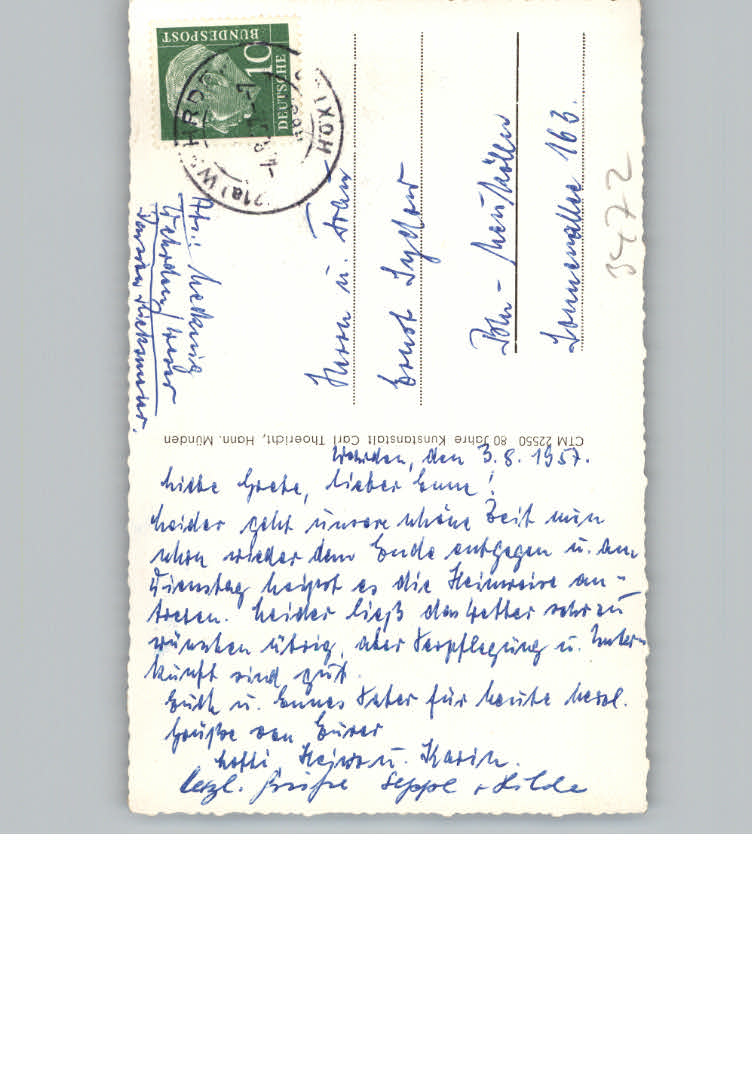 DEUTSCHE
BUNDESPOST
10
Abs.: Mecking
Wehrden/Weser
Pension Diekmeier.
Herrn u. Frau
Ernst Sydow
Bln-Neukölln
Sonnenallee 163.
3472
CTM 22550 80 Jahre Kunstanstalt Carl Thoericht, Hann. Münden
Wehrden, den 3.8.1957.
Liebe Grete, lieber Enne!
Leider geht unsere schöne Zeit nun
schon wieder dem Ende entgegen u. am
Dienstag heisst es die Heimreise an-
treten. Leider ließ das Wetter sehr zu
wünschen übrig, aber Verpflegung u. Unter-
kunft sind gut.
Euch u. Ennes Vater für heute herzl.
Grüße von Eurer
Lotti, Heinz u. Karin.
Herzl. Grüße Seppl + Hilde